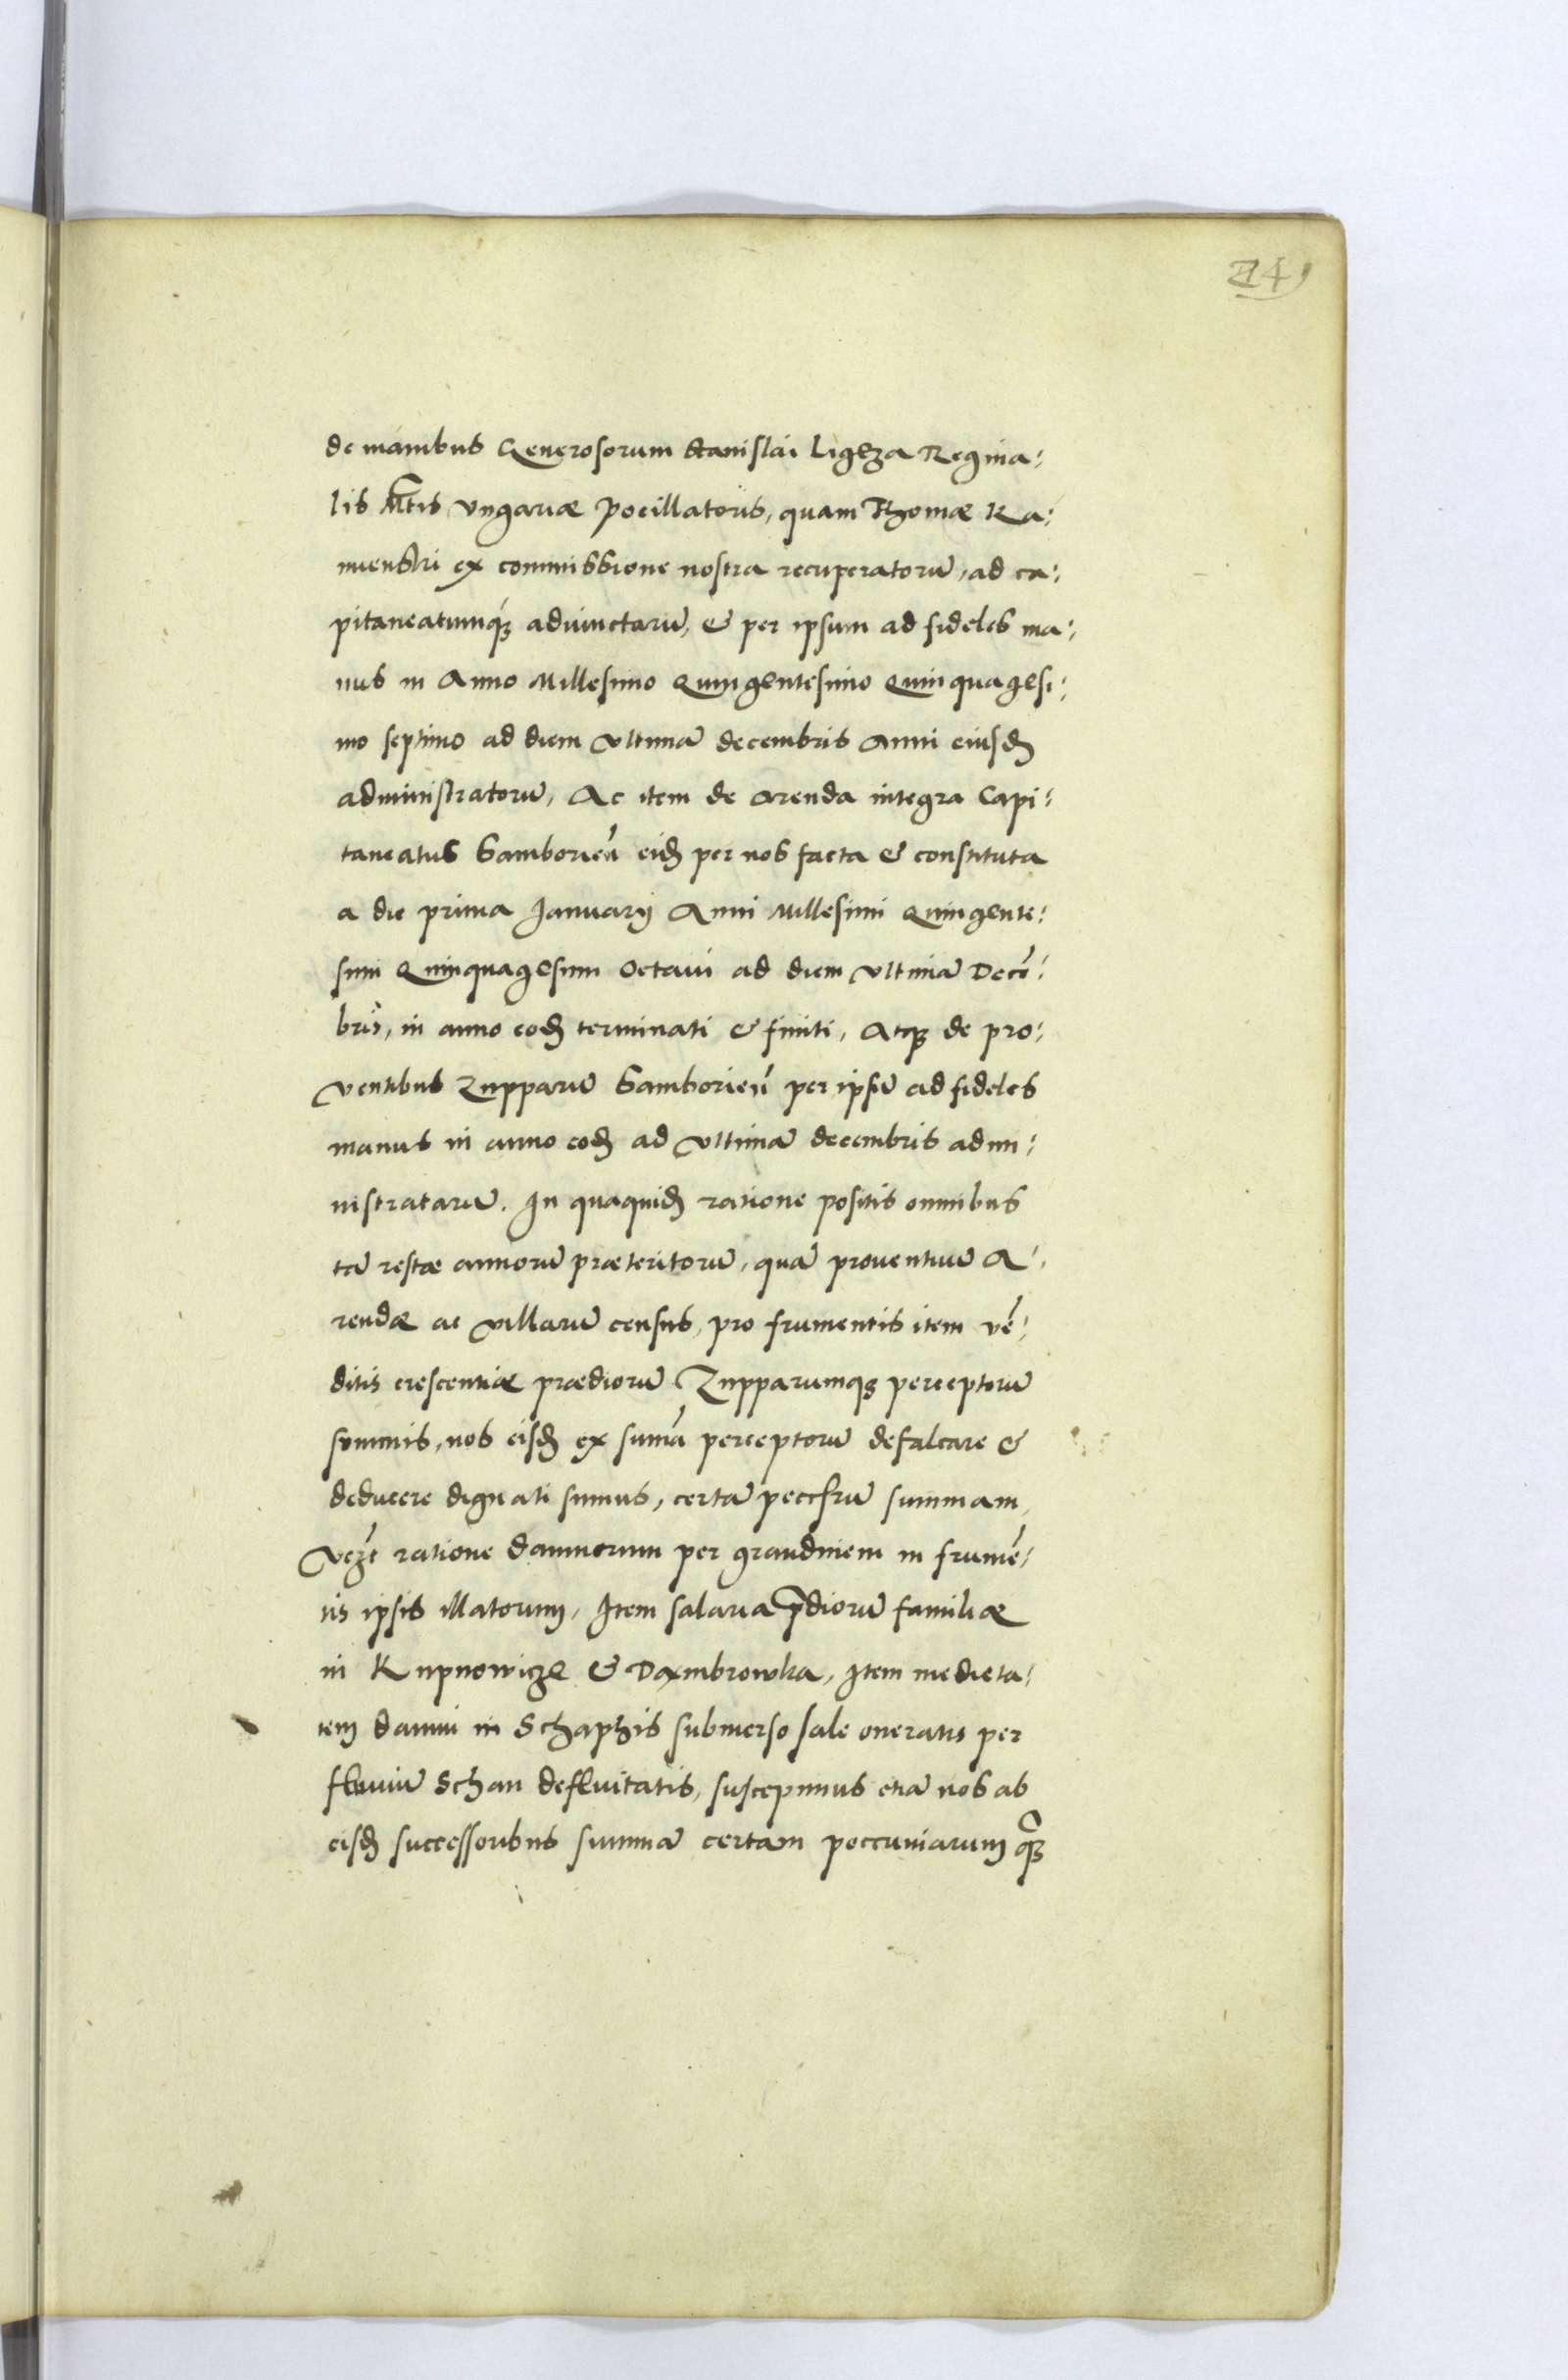 24
de manibus Generosorum Stanislai Ligęza Regina:
lis Mtis Vngariæ Pocillatoris, quam Thomæ Ra:
nienski ex commissione nostra recuperatorũ, ad ca:
pitaneatumq́ꝫ adiunctarũ, & per ipsum ad fideles ma:
nus in Anno Millesimo Quingentesimo Quinquagesi:
mo septimo ad diem vltimã decembris Anni eiusdꝫ
administratorũ, Ac item de Arenda integra Capi:
taneatus Samborieñ eidꝫ per nos facta & constituta
a die prima Januarij Anni Millesimi Quingente:
simi Quinquagesimi Octaui ad diem vltimã Decẽ:
bris, in anno eodꝫ terminati & finiti, Atqꝫ de pro:
ventibus Zupparũ Samborieñ per ipsũ ad fideles
manus in anno eodꝫ ad vltimã decembris admi:
nistratarũ. In quaquidꝫ ratione positis omnibus
tã restæ annorũ præteritorũ, quã prouentuũ A:
rendæ ac villarũ census, pro frumentis item vẽ:
ditis crescentiæ prædiorũ Zupparumqꝫ perceptorũ
summis, nos eisdꝫ ex sum̃a perceptorũ defalcare &
deducere dignati sumus, certã peccũiarũ summam,
Vcꝫt ratione damnorum per grandinem in frumẽ:
tis ipsis illatorum, Item salaria p̃diorũ familiæ
in Kupnowicze & Dąmbrowka, Item medieta:
tem damni in Schaphis submerso sale oneratis per
fluuiũ Schan defluitatis, suscepimus etiã nos ab
eisdꝫ successoribus summã certam peccuniarum qꝫ